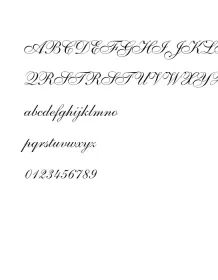 ABCDEFGHIJKLS
QRSTRSTUVWXYZ
abcdefghijklmno
pqrstuvwxyz
0123456789